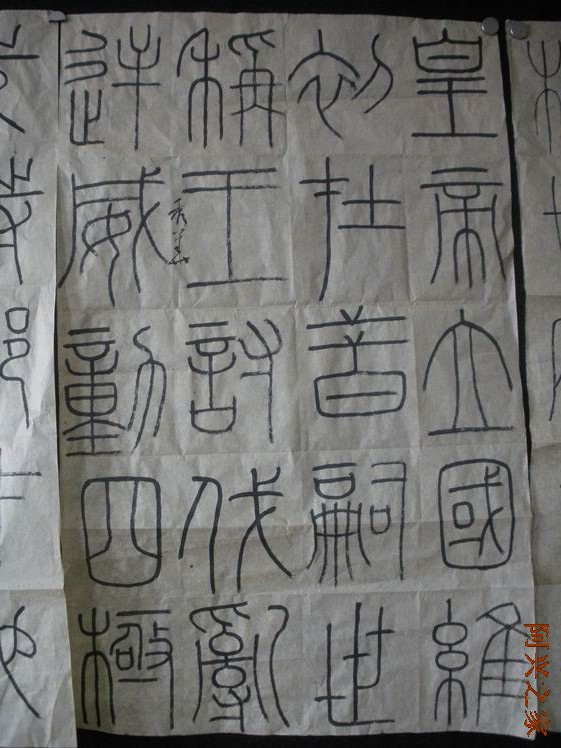 皇帝立國維
初在昔嗣世
稱王討伐亂
逆威動四極
阿兴之家